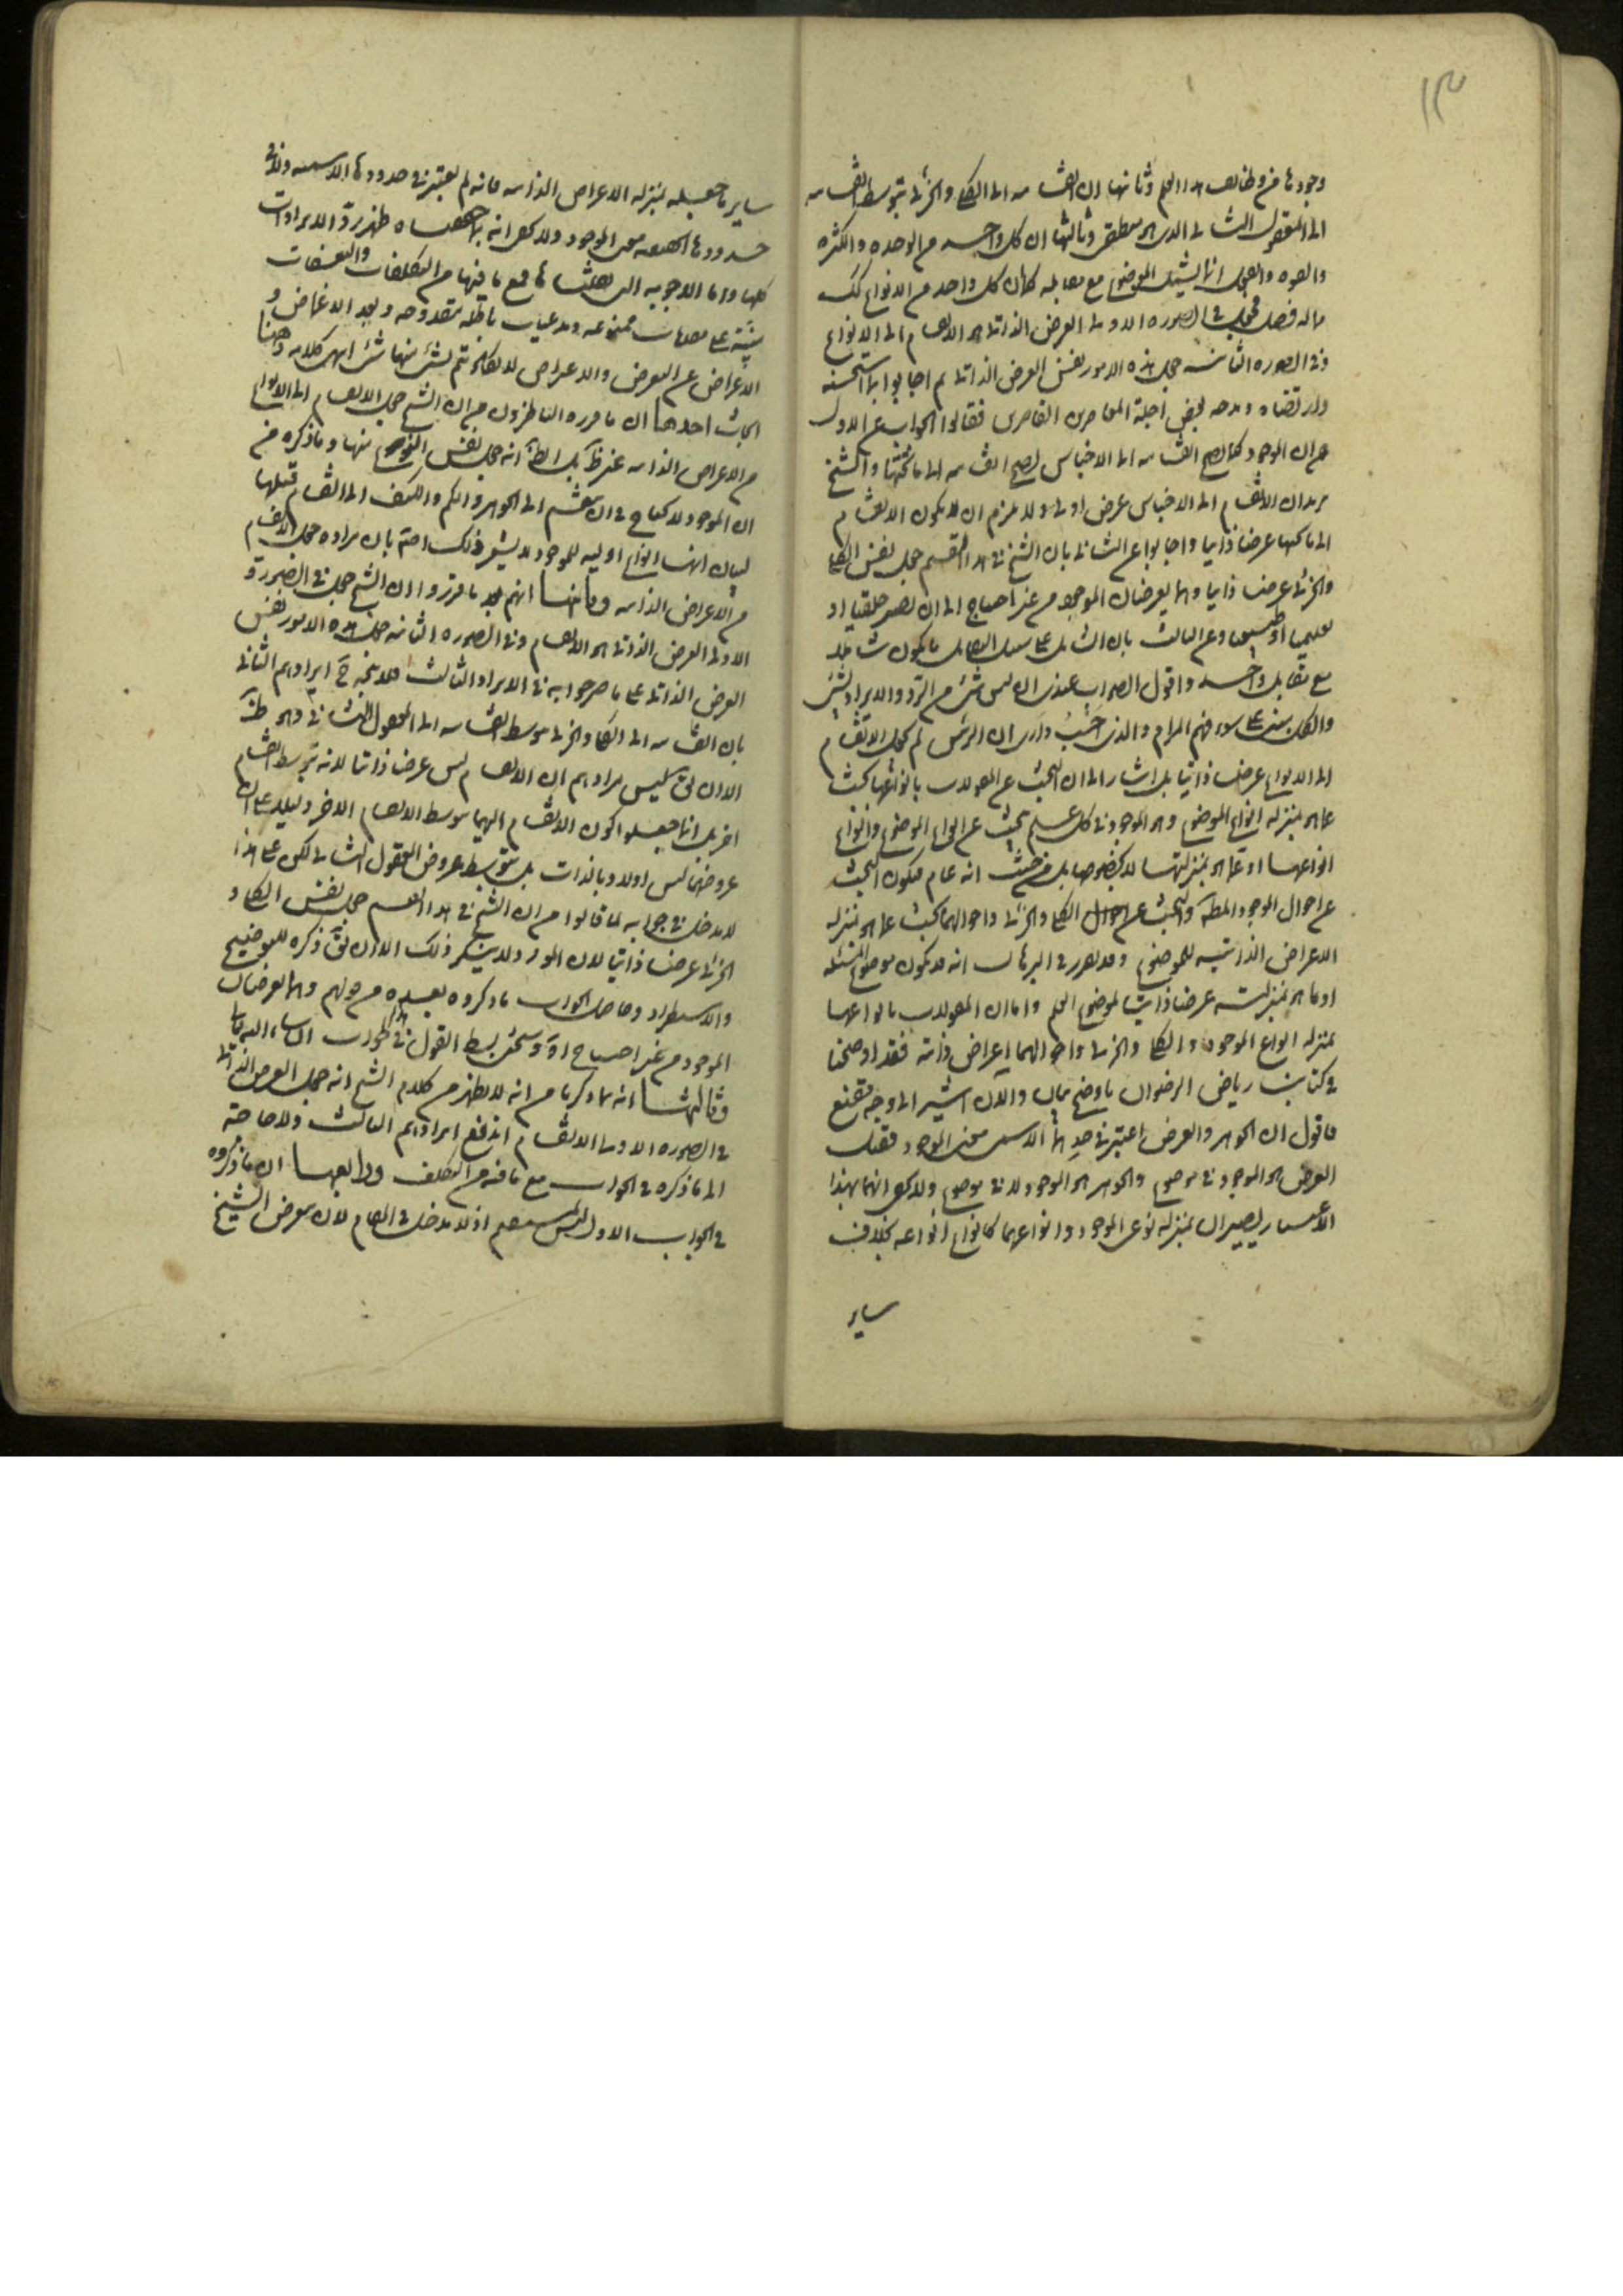 ١٣
وجودها من وظائف هذا العلم وثانيها ان انقسامه الى الكلي والجزئي بتوسط انقسامه
الى المعقول الثاني الذي هو منطقي وثالثها ان كل واحد من الوحدة والكثرة
والقوة والفعل انما يشمل الموضوع مع مقابله كما ان كل واحد من الانواع كك
فما له فصل فجعل في الصورة الاولى العرض الذاتي هو الانقسام الى الانواع
وفي الصورة الثانية جعل هذه الامور نفس العرض الذاتي ثم اجابوا بما استحسنه
وارتضاه ومدحه بعض اجلة المعاصرين القاصرين فقالوا الجواب عن الاول
هو ان الموجود كما يصح انقسامه الى الاجناس يصح انقسامه الى ما تحتها والشيخ
يريد ان الانقسام الى الاجناس عرض اولي ولا يلزم ان لا يكون الانقسام
الى ما تحتها عرضا ذاتيا واجابوا عن الثاني بان الشيخ في هذا القسم جعل نفس الكلي
والجزئي عرضا ذاتيا وهما يعرضان الموجود من غير احتياج الى ان يصير خلقيا او
تعليميا او طبيعيا وعن الثالث بان الشامل على سبيل التقابل ما يكون شاملا
مع مقابل واحد واقول الصواب عندي انه ليس شيء من الرد والايراد بشيء
والكل مبني على سوء فهم المرام والذي احسب وارى ان الرئيس لم يجعل الانقسام
الى الانواع عرضا ذاتيا بل اشار الى ان البحث عن المقولات بانواعها بحث
عما هو بمنزلة انواع الموضوع وهو الموجود وفي كل علم يبحث عن انواع الموضوع وانواع
انواعها او عما هو بمنزلتها لا بخصوصها بل من حيث انه عام فيكون البحث
عن احوال الموجود المطلق والبحث عن احوال الكلي والجزئي واحوالهما بحث عما هو بمنزلة
الاعراض الذاتية للموضوع وقد تقرر في البرهان انه قد يكون موضوع المسئلة
او ما هو بمنزلته عرضا ذاتيا لموضوع العلم واما ان المقولات بانواعها
بمنزلة انواع الموجود والكلي والجزئي واحوالهما اعراض ذاتية فقد اوضحنا
في كتابنا رياض الرضوان باوضح بيان والان اشير الى وجه مقنع
فاقول ان الجوهر والعرض اعتبر في حديهما الاسمي معنى الموجود فقيل
العرض هو الموجود في موضوع والجوهر هو الموجود لا في موضوع ولا يخفى انهما بهذا
الاعتبار يصيران بمنزلة نوعي الموجود وانواعهما كانواع انواعه بخلاف
ساير
ساير ما جعله بمنزلة الاعراض الذاتية فانه لم يعتبر في حدودها الاسمية ولا في
حدودها الحقيقية معنى الموجود ولا يخفى انه بما حققناه ظهر رد الايرادات
كلها واما الاجوبة التي نقلناها فمع ما فيها من التكلفات والتعسفات
مبنية على مقدمات ممنوعة ومدعيات باطلة مقدوحة وبعد الاغماض و
الاعراض عن التعرض والاعتراض لا يكاد يتم شيء منها شيء انتهى كلامه وههنا
ابحاث احدها ان ما قرره الناظرون من ان الشيخ جعل الانقسام الى الانواع
من الاعراض الذاتية غير ظاهر بل الظاهر انه جعل نفس النوع منها وما ذكره من
ان الموجود لا يحتاج في ان ينقسم الى الجوهر والكم والكيف الى انقسام قبلها
لبيان انها انواع اولية للموجود لا يشعر بذلك اصلا بان مراده جعل الانقسام
من الاعراض الذاتية وثانيها انهم بعد ما قرروا ان الشيخ جعل في الصورة
الاولى العرض الذاتي هو الانقسام وفي الصورة الثانية جعل هذه الامور نفس
العرض الذاتي على ما صرحوا به في الايراد الثالث فلا يتجه ح ايرادهم الثاني
بان انقسامه الى الكلي والجزئي بتوسط انقسامه الى المعقول الثاني وهو ظاهر
الا ان يق ليس مرادهم ان الانقسام ليس عرضا ذاتيا لانه بتوسط انقسام
اخر بل انما جعلوا كون الانقسام اليهما بتوسط الانقسام الاخر دليلا على ان
عروضهما ليس اولا وبالذات بل بتوسط عروض المعقول الثاني لكن على هذا
لا مدخل في جوابه لما قالوا من ان الشيخ في هذا القسم جعل نفس الكلي و
الجزئي عرضا ذاتيا لان المورد لا ينكر ذلك الا ان يق ذكره للتوضيح
والاستطراد وحاصل الجواب ما ذكروه بعيده من قولهم وهما يعرضان
الموجود من غير احتياج اه وسيجيء بسط القول في الجواب ان شاء الله تعالى
وثالثها انه بما ذكرنا من انه لا يظهر من كلام الشيخ انه جعل العرض الذاتي
في الصورة الاولى الانقسام اندفع ايرادهم الثالث ولا حاجة
الى ما ذكره في الجواب مع ما فيه من التكلف ورابعها ان ما ذكروه
في الجواب الاول ليس بمستقيم اذ لا مدخل في المقام لان يعرض الشيخ